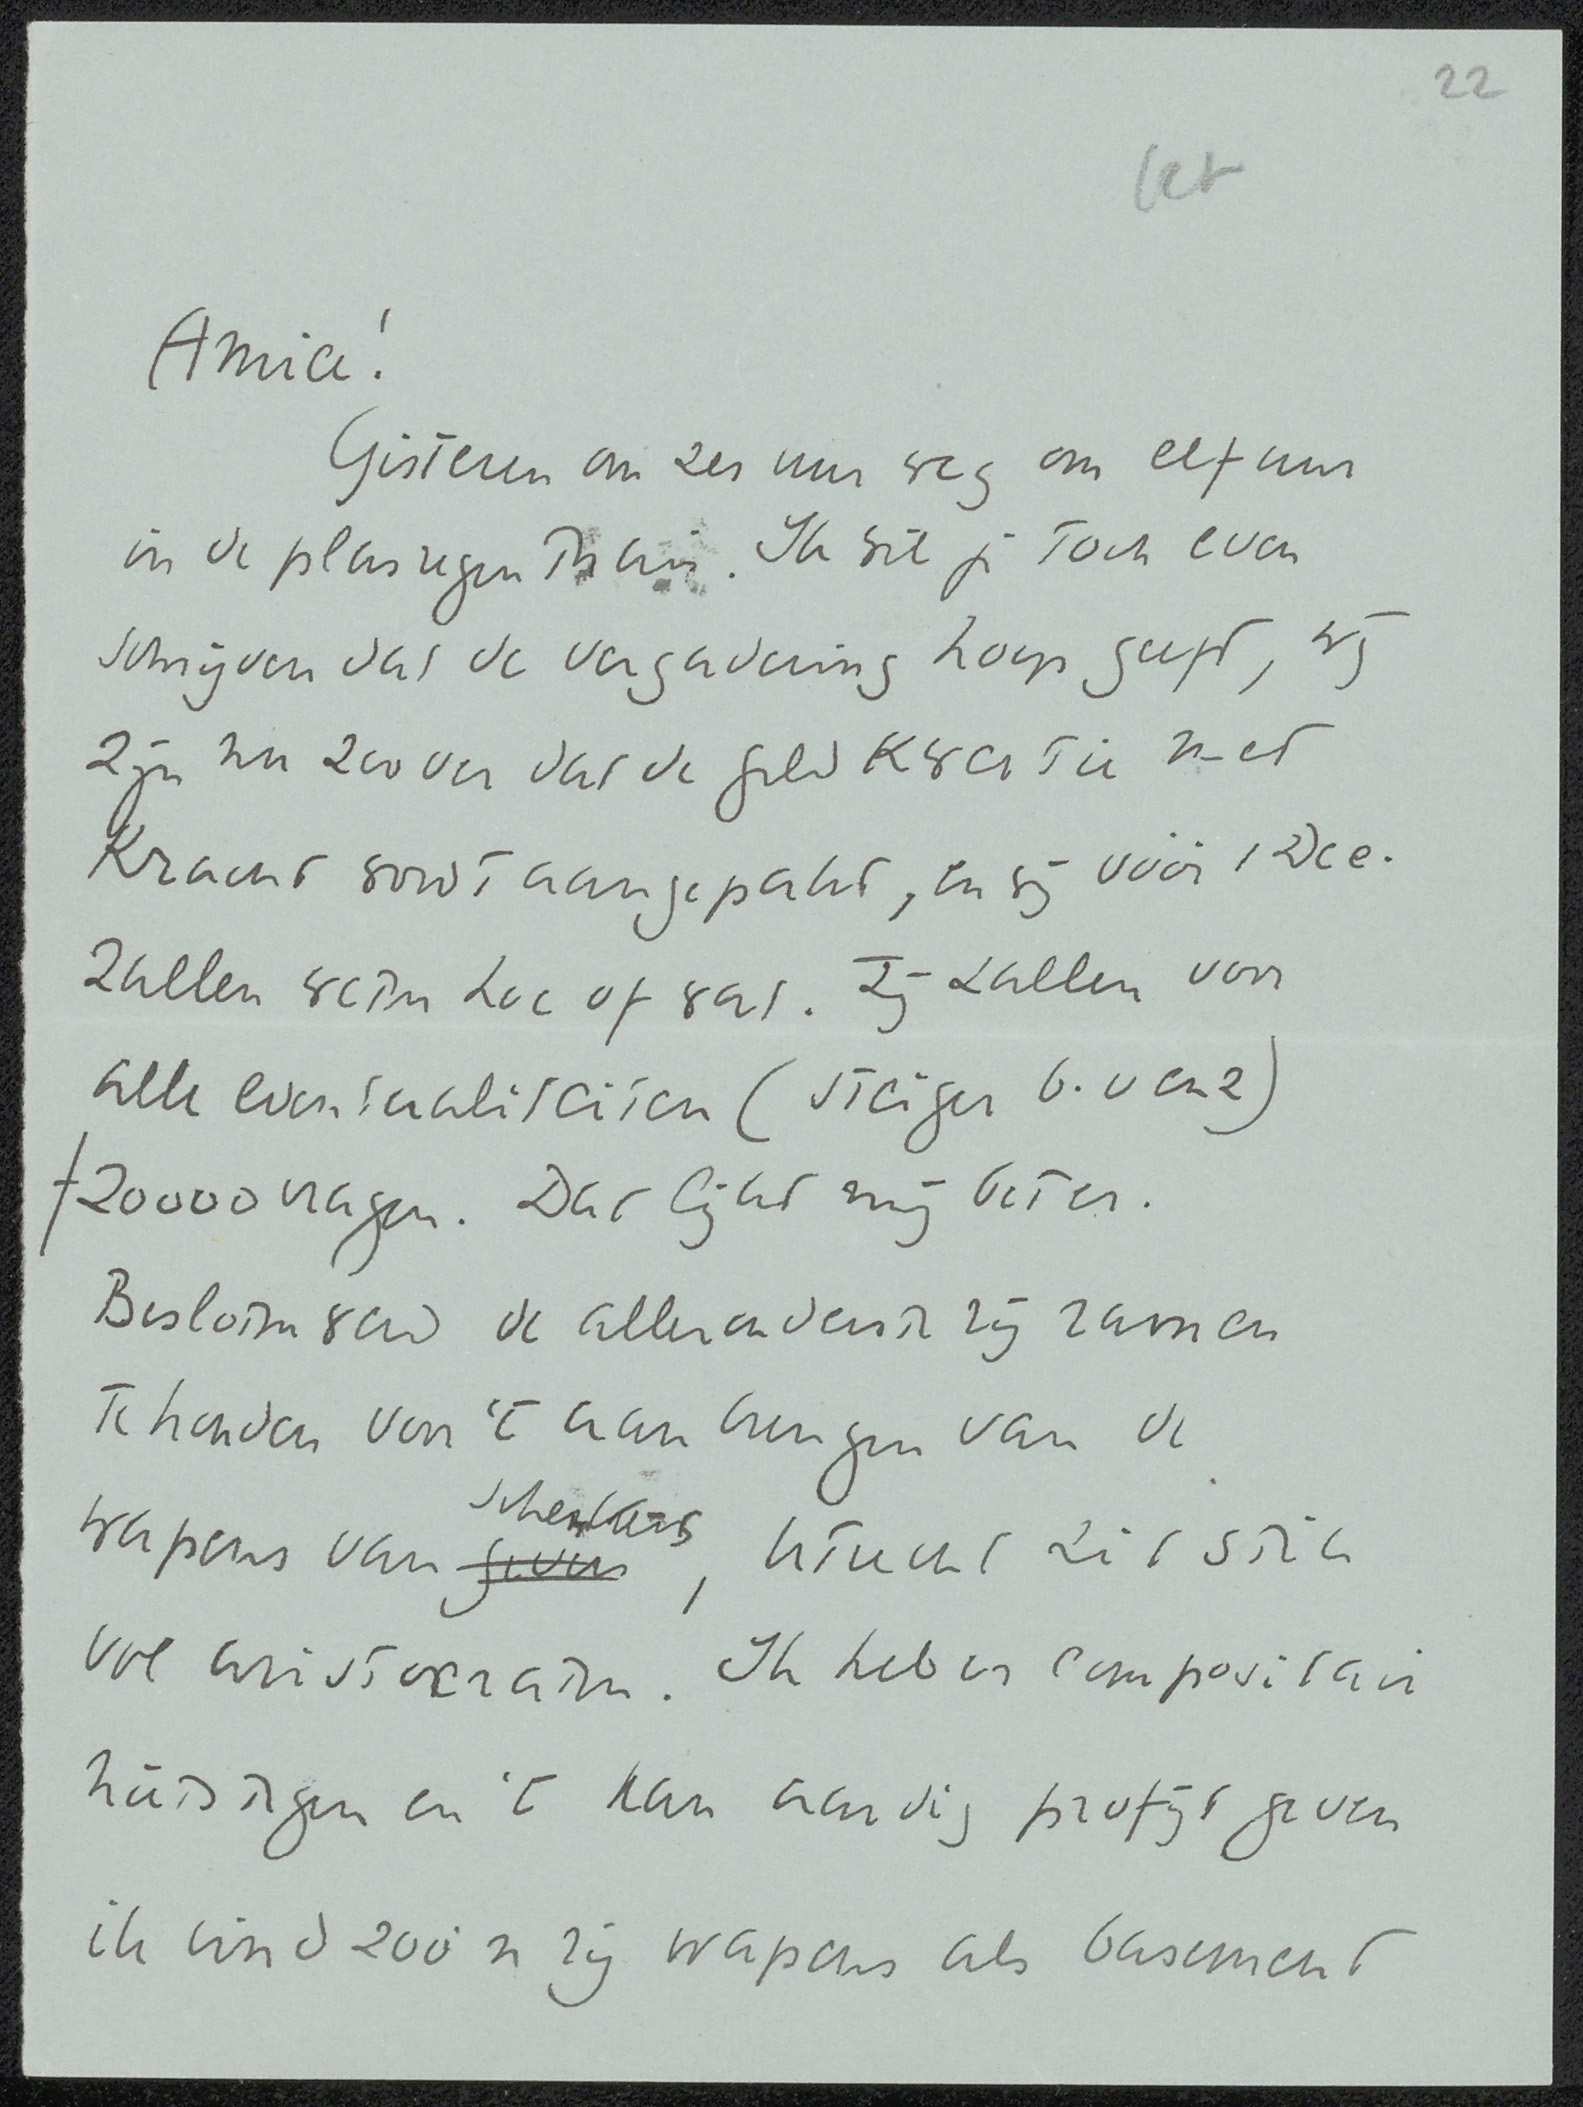 22
Amice!
Gisteren om zes uur weg om elf uur
in de plasregen thuis. Ik wil je toch even
schrijven dat de vergadering hoop geeft, wij
zijn nu zoover dat de geldkwestie met
kracht wordt aangepakt, en wij vóór 1 Dec.
zullen weten hoe of wat. Zij zullen voor
alle eventualiteiten (steiger b.v. enz)
f 20000 vragen. Dat lijkt mij beter.
Besloten werd de alleronderste rij ramen
te houden voor 't aanbrengen van de
wapens van schenkers, Utrecht zit stik
vol aristocraten. Ik heb er compositair
niets tegen en 't kan aardig profijt geven
ik vind zoo'n rij wapens als basement